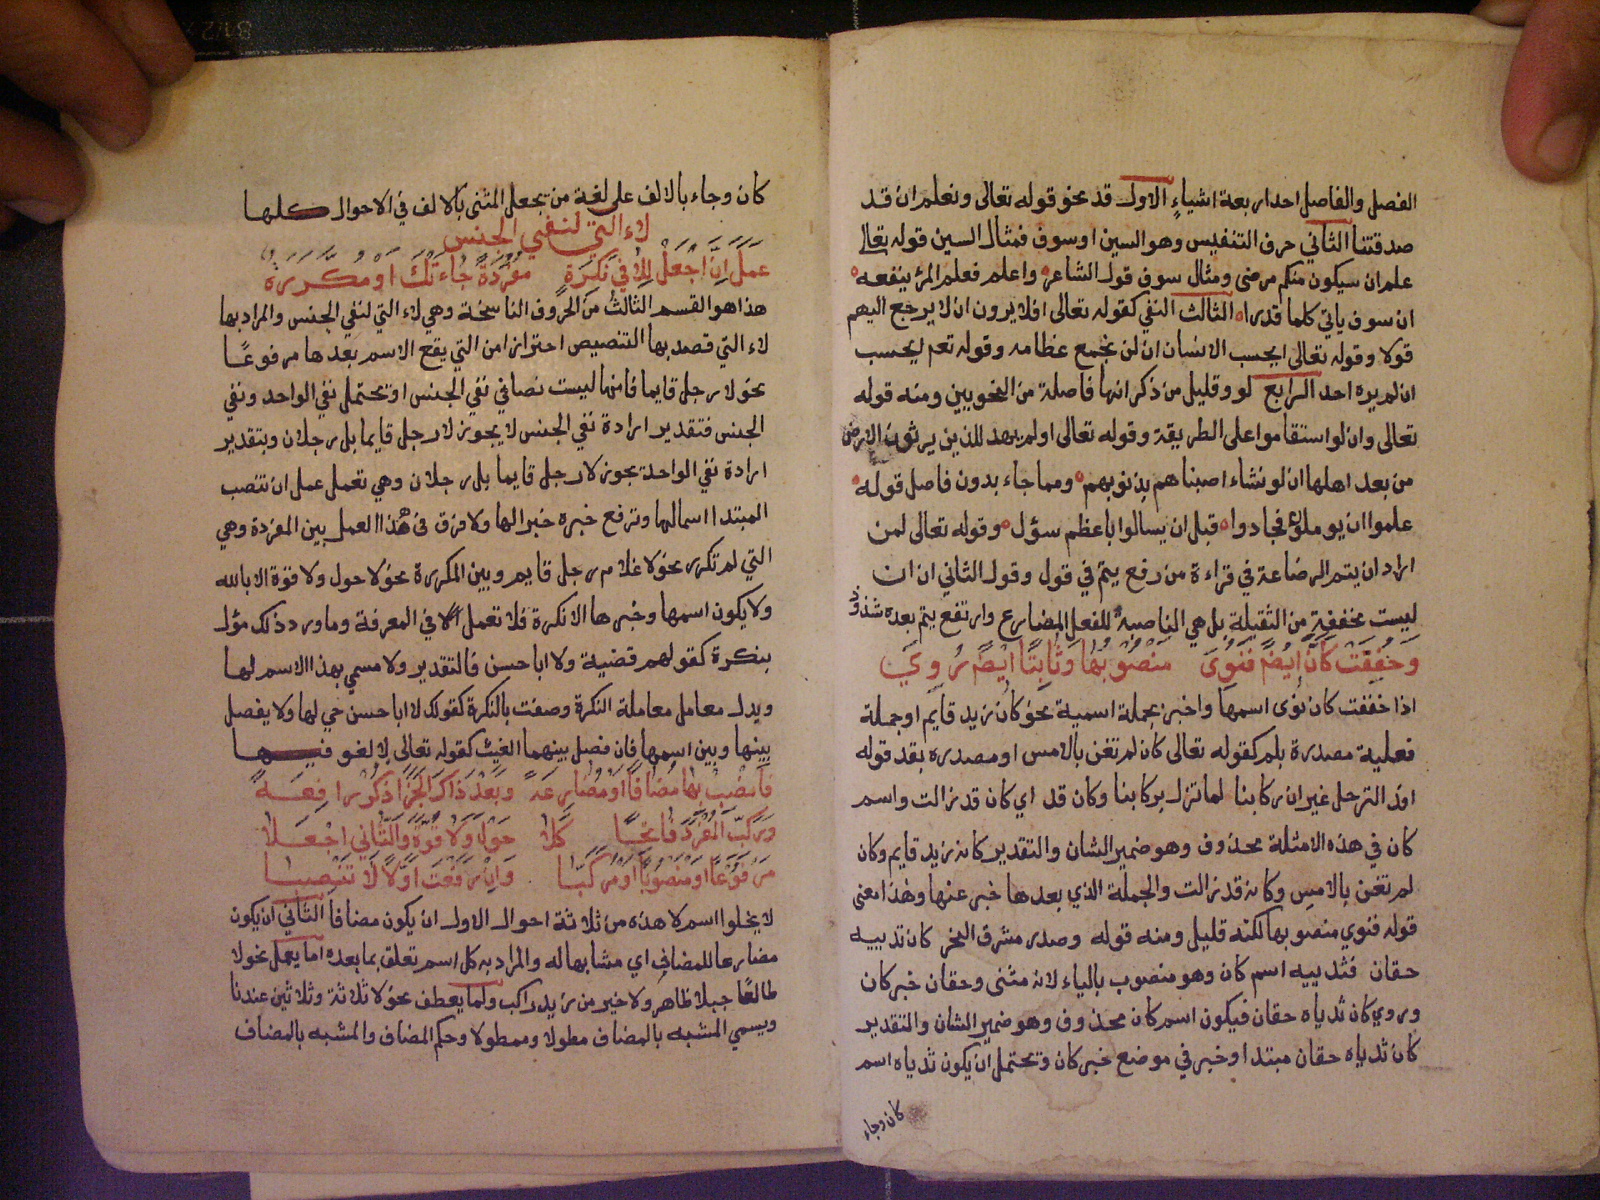 الفصل والفاصل احد اربعة اشياء الاول قد نحو قوله تعالى ونعلم ان قد
صدقتنا الثاني حرف التنفيس وهو السين او سوف فمثال السين قوله تعالى
علم ان سيكون منكم مرضى ومثال سوف قول الشاعر واعلم فعلم المرء ينفعه
ان سوف ياتي كلما قدرا الثالث النفي كقوله تعالى افلا يرون ان لا يرجع اليهم
قولا وقوله تعالى ايحسب الانسان ان لن نجمع عظامه وقوله تعم ايحسب
ان لم يره احد الرابع لو وقليل من ذكر انها فاصلة من النحويين ومنه قوله
تعالى وان لو استقاموا على الطريقة وقوله تعالى اولم يهد للذين يرثون الارض
من بعد اهلها ان لو نشاء اصبناهم بذنوبهم ومما جاء بدون فاصل قوله
علموا ان يوملون فجادوا قبل ان يسالوا باعظم سؤل وقوله تعالى لمن
اراد ان يتم الرضاعة في قراءة من رفع يتم في قول وقول الثاني ان ان
ليست مخففة من الثقيلة بل هي الناصبة للفعل المضارع وارتفع يتم بعده شذوذ
وخففت كأن ايضا فنوى منصوبها وثابتا ايضا روي
اذا خففت كان نوى اسمها واخبر بجملة اسمية نحو كان زيد قايم او جملة
فعلية مصدرة بلم كقوله تعالى كان لم تغن بالامس او مصدرة بقد قوله
افد الترحل غير ان ركابنا لما تزل بركابنا وكان قد اي كان قد زالت واسم
كان في هذه الامثلة محذوف وهو ضمير الشان والتقدير كانه زيد قايم وكان
لم تغن بالامس وكانه قد زالت والجملة الذي بعدها خبر عنها وهذا معنى
قوله فنوي منصوبها لكنه قليل ومنه قوله وصدر مشرق النحر كان ثدييه
حقان فثدييه اسم كان وهو منصوب بالياء لانه مثنى وحقان خبر كان
وروي كان ثدياه حقان فيكون اسم كان محذوف وهو ضمير الشان والتقدير
كان ثدياه حقان مبتدا وخبر في موضع خبر كان وتحتمل ان يكون ثدياه اسم
كان وجاء
كان وجاء بالالف على لغة من يجعل المثنى بالالف في الاحوال كلها
لاء التي لنفي الجنس
عمل ان اجعل للا في نكرة مفردة جاءتك او مكررة
هذا هو القسم الثالث من الحروف الناسخة وهي لاء التي لنفي الجنس والمراد بها
لاء التي قصد بها التنصيص احترازا من التي يقع الاسم بعدها مرفوعا
نحو لا رجل قايما فانها ليست نصا في نفي الجنس او تحتمل نفي الواحد ونفي
الجنس فتقدير ارادة نفي الجنس لا يجوز لا رجل قايما بل رجلان وبتقدير
ارادة نفي الواحد يجوز لا رجل قايما بل رجلان وهي تعمل عمل ان تنصب
المبتدا اسما لها وترفع خبره خبرا لها ولا فرق في هذا العمل بين المفردة وهي
التي لم تكرر نحو لا غلام رجل قايم وبين المكررة نحو لا حول ولا قوة الا بالله
ولا يكون اسمها وخبرها الا نكرة فلا تعمل لا في المعرفة وما ورد ذلك مؤل
بنكرة كقولهم قضية ولا ابا حسن فالتقدير ولا مسمي بهذا الاسم لها
ويدل معامل معاملة النكرة وصفت بالنكرة كقولك لا ابا حسن حي لها ولا يفصل
بينها وبين اسمها فان فصل بينهما الغيت كقوله تعالى لا لغو فيها
فانصب بها مضافا او مضارعه وبعد ذاك الخبر اذكر رافعه
وركب المفرد فاتحا كلا حول ولا قوة والثاني اجعلا
مرفوعا او منصوبا او مركبا وان رفعت اولا لا تنصبا
لا يخلوا اسم لا هذه من ثلاثة احوال الاول ان يكون مضافا الثاني ان يكون
مضارعا للمضاف اي مشابها له والمراد به كل اسم تعلق بما بعده اما بعمل نحو لا
طالعا جبلا ظاهر ولا خير من زيد راكب ولما يعطف نحو لا ثلاثة وثلاثين عندنا
ويسمي المشبه بالمضاف مطولا وممطولا وحكم المضاف والمشبه بالمضاف